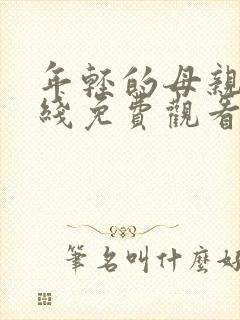 年輕的母親
綫免費觀看
筆名叫什麼好